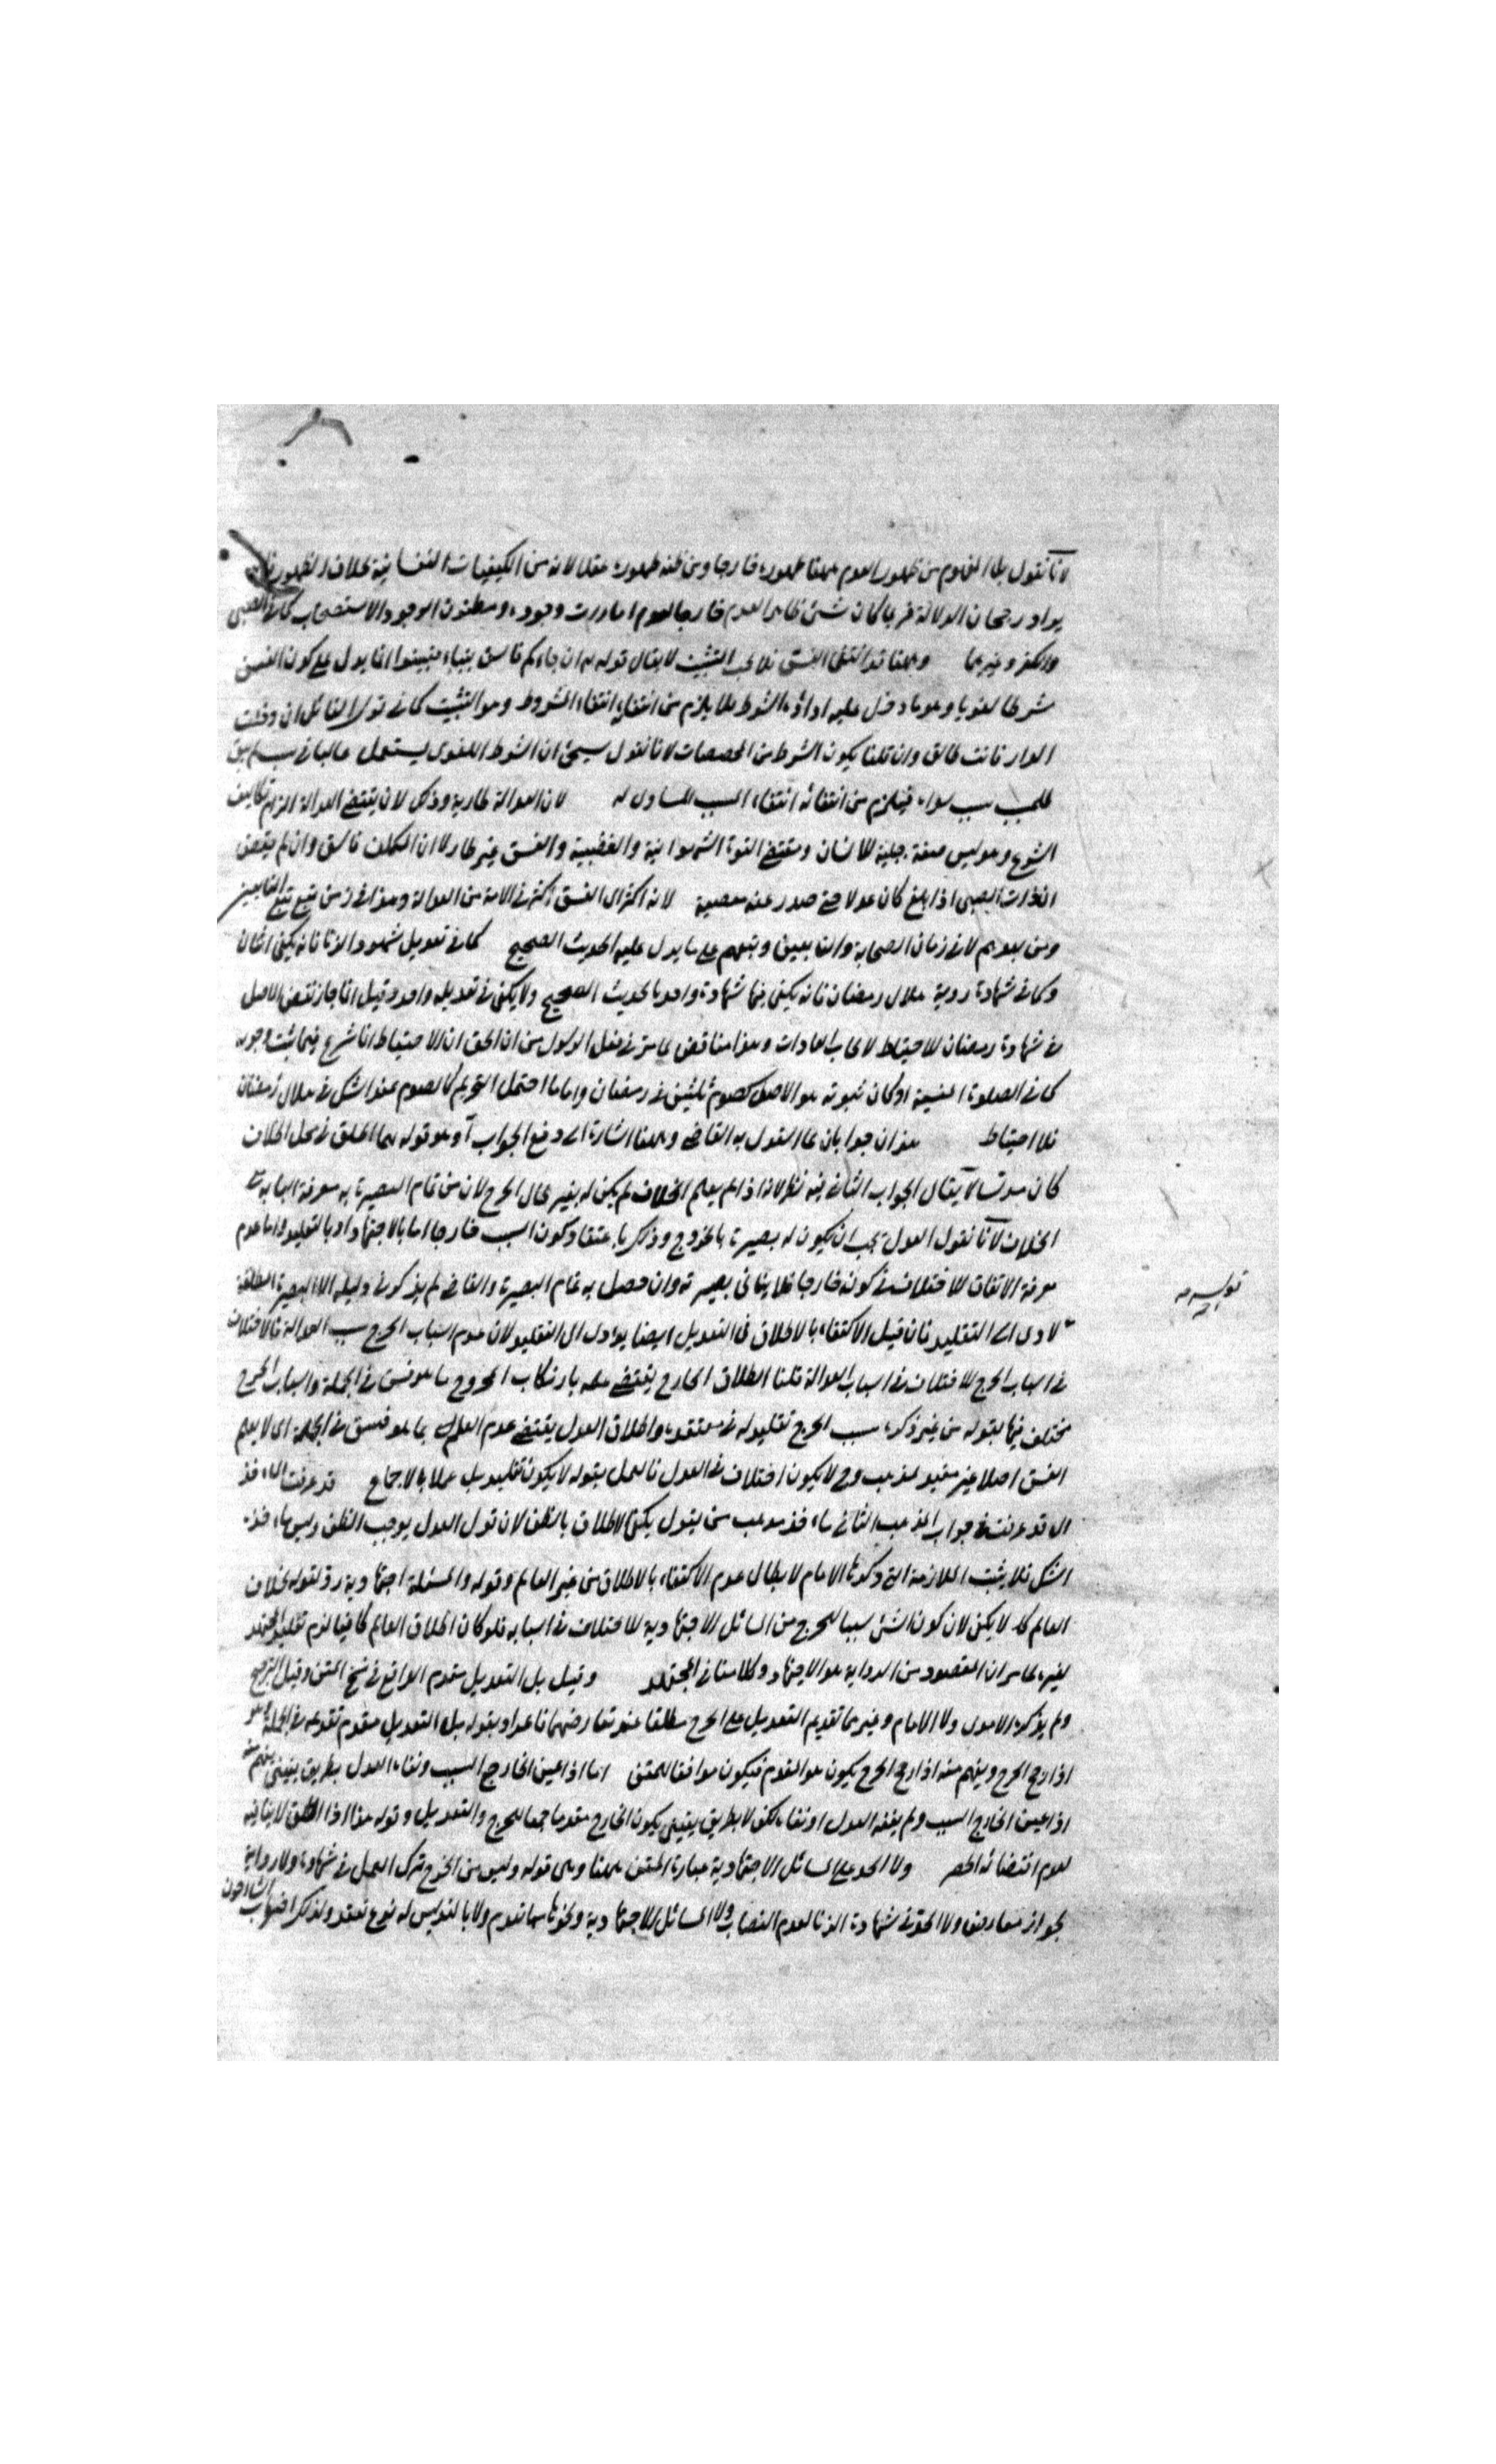 لانا نقول بل المفهوم من ظهور العدم ههنا ظهوره خارجا ومن ظنه ظهوره عقلا لانه من الكيفيات النفسانية بخلاف الظهور
يراد رجحان الدلالة فربما كان شئ ظاهر العدم خارجا لعدم امارت وجوده ومظنون الوجود الاستصحاب كما في الصبى
والكفر وغيرهما وههنا قد انتفى الفسق فلا يجب التثبت لا يقال قوله تع ان جاءكم فاسق بنباء فتبينوا انما يدل على كون الفسق
شرطا لغويا وهو ما دخل عليه اداة الشرط فلا يلزم من انتفائه انتفاء المشروط وهو التثبت كما في قول القائل ان دخلت
الدار فانت طالق وان قلنا يكون الشرط من المخصصات لانا نقول سيجئ ان الشرط اللغوى يستعمل غالبا في سبب لم يبق
للمسبب سبب سواه فيلزم من انتفائه انتفاء المسبب المساوى له لان العدالة طارية وذلك لان يقتضى العدالة التزام تكاليف
الشرع وهو ليس صفة جبلية للانسان ومقتضى القوة الشهوانية والغضبية والفسق غير طار لا ان المكلف فاسق وان لم يقتض
الذات الصبى اذا بلغ كان عدلا حتى صدر عنه معصية لانه اكثر اى الفسق اكثر في الامة من العدالة وهذا في زمن تبع تبع التابعين
ومن بعدهم لا في زمان الصحابة والتابعين وتبعهم على ما يدل عليه الحديث الصحيح كما في تعديل شهود الزنا فانه يكفى اثنان
وكما في شهادة روية هلال رمضان فانه يكفى فيها شهادة واحد بالحديث الصحيح ولا يكفى في تعديله واحد وقيل انما جاز نقض الاصل
في شهادة رمضان للاحتياط لايجاب العبادات وهذا مناقض لما مر في فعل الرسول من ان الحق ان الاحتياط انما شرع فيما ثبت وجوبه
كما في الصلوة المنسية او كان ثبوته هو الاصل كصوم ثلثين في رمضان واما ما احتمل التحريم كالصوم عند الشك في هلال رمضان
فلا احتياط هذان جوابان عما استدل به القاضى وههنا اشارة الى دفع الجواب آ وهو قوله مهما اطلق في محل الخلاف
كان مدلسا لا يقال الجواب الثانى فيه نظر لانه اذا لم يعلم الخلاف لم يكن له بصير بحال الجرح لان من تمام البصيرة به معرفة اسبابه في
الخلاف لانا نقول العدل يجب ان يكون له بصيرة بالجروح وذلك باعتقاد كون السبب جارحا اما بالاجتهاد او بالتقليد واما عدم
معرفة الاتفاق للاختلاف في كونه جارحا فلا ينافى بصيرته وان حصل به تمام البصيرة والقاضى لم يذكر في دليله الا البصيرة المطلقة
لادى الى التقليد فان قيل الاكتفاء بالاطلاق في التعديل ايضا يودى الى التقليد لان عدم اسباب الجرح سبب العدالة فالاختلاف
في اسباب الجرح للاختلاف في اسباب العدالة قلنا اطلاق الجارح يقتضى علمه بارتكاب المجروح ما هو فسق في الجملة واسباب الجرح
مختلف فيها بقوله من غير ذكره سبب الجرح تقليد له في معتقده واطلاق العدل يقتضى عدم العلم بما هو فسق في الجملة اى لا يعلم
الفسق اصلا غير مقيد بمذهب وح لا يكون اختلاف في العدل فالعمل بقوله لا يكون تقليد بل عملا بالاجماع قد عرفت الماء خذ
اى قد عرفت في جواب المذهب الثانى ماء خذ مذهب من يقول يكفى الاطلاق بالظن لان قول العدل يوجب الظن وليس ماء خذه
الشك فلا يثبت الملازمة التى ذكرها الامام لابطال عدم الاكتفاء بالاطلاق من غير العالم وقوله والمسئلة اجتهادية رد لقوله بخلاف
العالم كلا لا يكفى لان كون الشئ سببا للجرح من المسائل الاجتهادية للاختلاف في اسبابه فلو كان اطلاق العالم كافيا لزم تقليد المجتهد
لغيره ظاهر ان المقصود من الرواية هو الاجتهاد وكلامنا في المجتهد وقيل بل التعديل مقدم الواقع في نسخ المتن وقيل الترجيح
ولم يذكر الامدى ولا الامام وغيرهما تقديم التعديل على الجرح مطلقا عند تعارضهما فاعراد بقوله بل التعديل مقدم تقدمه في الجملة وهو
اذا رجح الجرح ويفهم منه اذا رجح الجرح يكون هو المقدم فيكون موافقا للمتن اما اذا عين الجارح السبب ونفاه العدل بطريق يقينى يفهم منه
اذا عين الجارح السبب ولم ينفه العدل او نفاه لكن لا بطريق يقينى يكون الجارح مقدما جمعا للجرح والتعديل وقوله هذا اذا اطلق لا ينافيه
لعدم اقتضائه الحصر ولا الحد على المسائل الاجتهادية عبارة المتن ههنا وهى قوله وليس من الجرح ترك العمل في شهادة ولا رواية
لجواز معارض ولا الحد في شهادة الزنا لعدم النصاب ولا المسائل الاجتهادية ونحوها مما تقدم ولا بالتدليس له نوع تعقد ولذلك اضطراب الشارحون